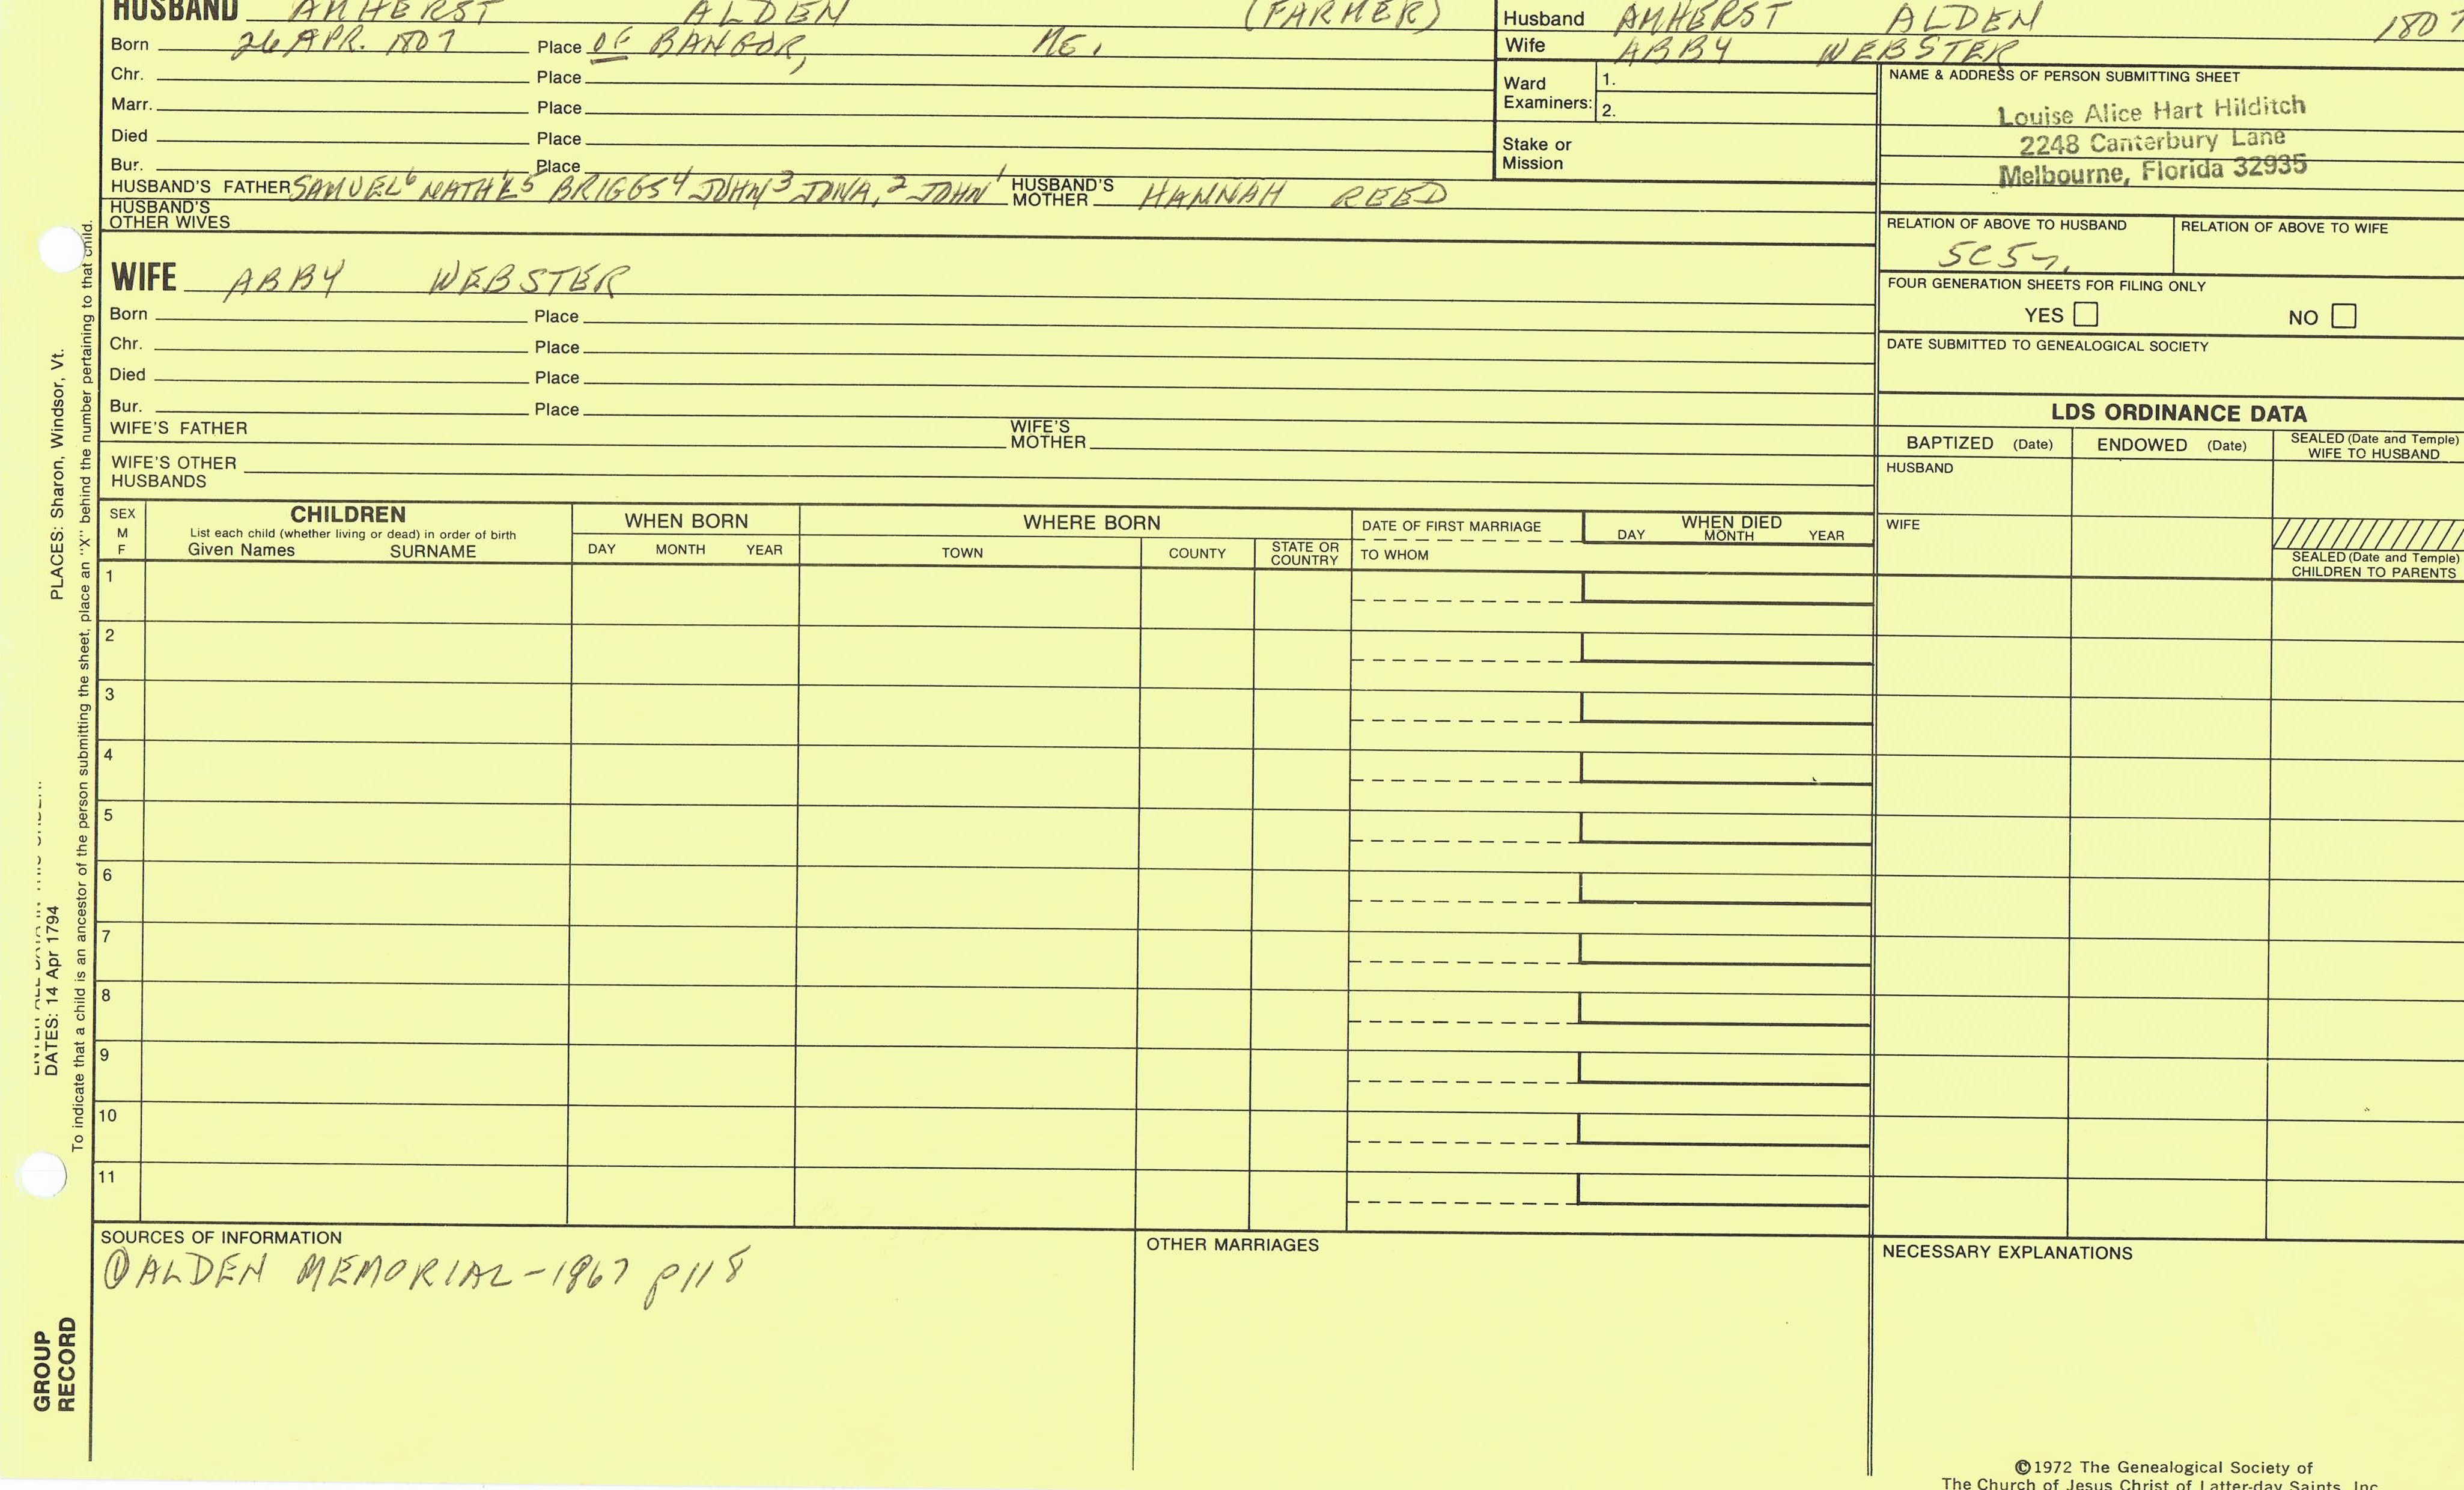 HUSBAND AMHERST ALDEN (FARMER)
Born 26 APR. 1807 Place OF BANGOR, ME.
Chr. Place
Marr. Place
Died Place
Bur. Place
HUSBAND'S FATHER SAMUEL⁶ NATH'L⁵ BRIGGS⁴ JOHN³ JONA.² JOHN¹ HUSBAND'S MOTHER HANNAH REED
HUSBAND'S OTHER WIVES
Husband AMHERST ALDEN 1807
Wife ABBY WEBSTER
Ward Examiners: 1.
2.
Stake or Mission
NAME & ADDRESS OF PERSON SUBMITTING SHEET
Louise Alice Hart Hilditch
2248 Canterbury Lane
Melbourne, Florida 32935
RELATION OF ABOVE TO HUSBAND RELATION OF ABOVE TO WIFE
FOUR GENERATION SHEETS FOR FILING ONLY
YES NO
DATE SUBMITTED TO GENEALOGICAL SOCIETY
WIFE ABBY WEBSTER
Born Place
Chr. Place
Died Place
Bur. Place
WIFE'S FATHER WIFE'S MOTHER
WIFE'S OTHER HUSBANDS
LDS ORDINANCE DATA
BAPTIZED (Date) ENDOWED (Date) SEALED (Date and Temple) WIFE TO HUSBAND
HUSBAND
WIFE
SEALED (Date and Temple) CHILDREN TO PARENTS
SEX M F
CHILDREN
List each child (whether living or dead) in order of birth
Given Names SURNAME
WHEN BORN
DAY MONTH YEAR
WHERE BORN
TOWN COUNTY STATE OR COUNTRY
DATE OF FIRST MARRIAGE
TO WHOM
WHEN DIED
DAY MONTH YEAR
1
2
3
4
5
6
7
8
9
10
11
SOURCES OF INFORMATION
① ALDEN MEMORIAL - 1867 p118
OTHER MARRIAGES
NECESSARY EXPLANATIONS
©1972 The Genealogical Society of
The Church of Jesus Christ of Latter-day Saints, Inc.
PLACES: Sharon, Windsor, Vt.
DATES: 14 Apr 1794
To indicate that a child is an ancestor of the person submitting the sheet, place an "X" behind the number pertaining to that child.
GROUP
RECORD